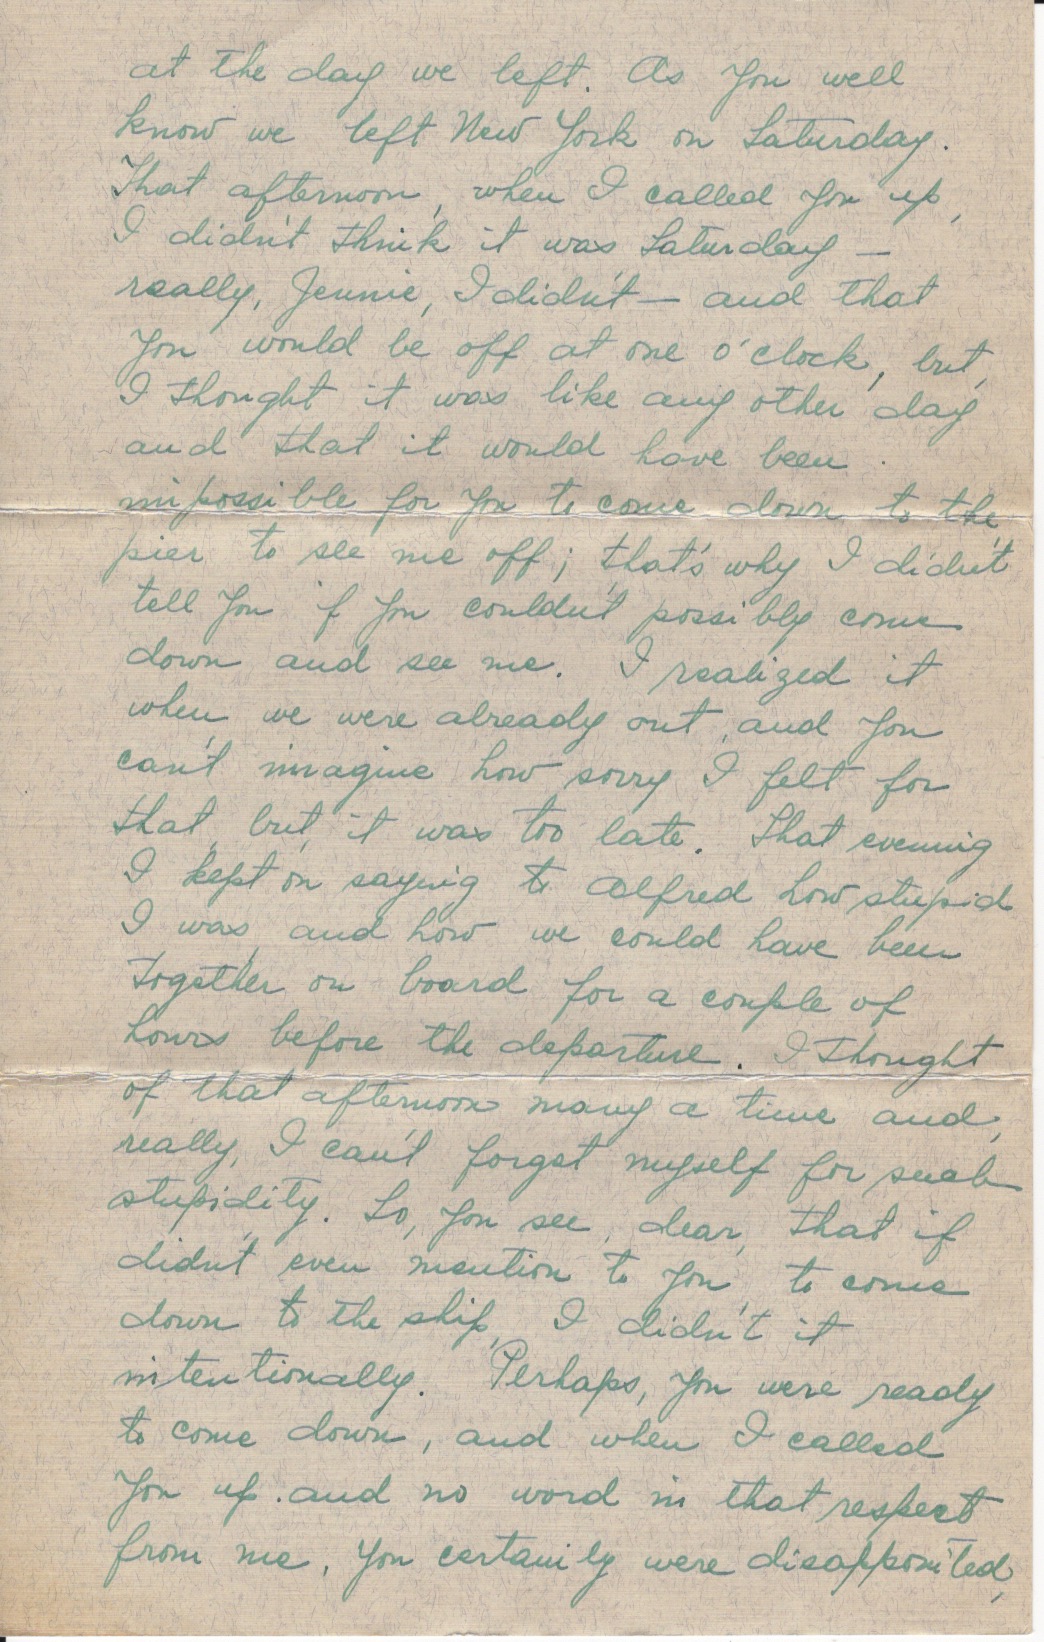 at the day we left. As you well
know we left New York on Saturday.
That afternoon, when I called you up,
I didn't think it was Saturday —
really, Jennie, I didn't — and that
you would be off at one o'clock, but,
I thought it was like any other day
and that it would have been
impossible for you to come down to the
pier to see me off; that's why I didn't
tell you if you couldn't possibly come
down and see me. I realized it
when we were already out, and you
can't imagine how sorry I felt for
that, but, it was too late. That evening
I kept on saying to Alfred how stupid
I was, and how we could have been
together on board for a couple of
hours before the departure. I thought
of that afternoon many a time and,
really, I can't forget myself for such
stupidity. So, you see, dear, that if
didn't even mention to you, to come
down to the ship, I didn't it
intentionally. Perhaps, you were ready
to come down, and when I called
you up. and no word in that respect
from me, you certainly were disappointed,